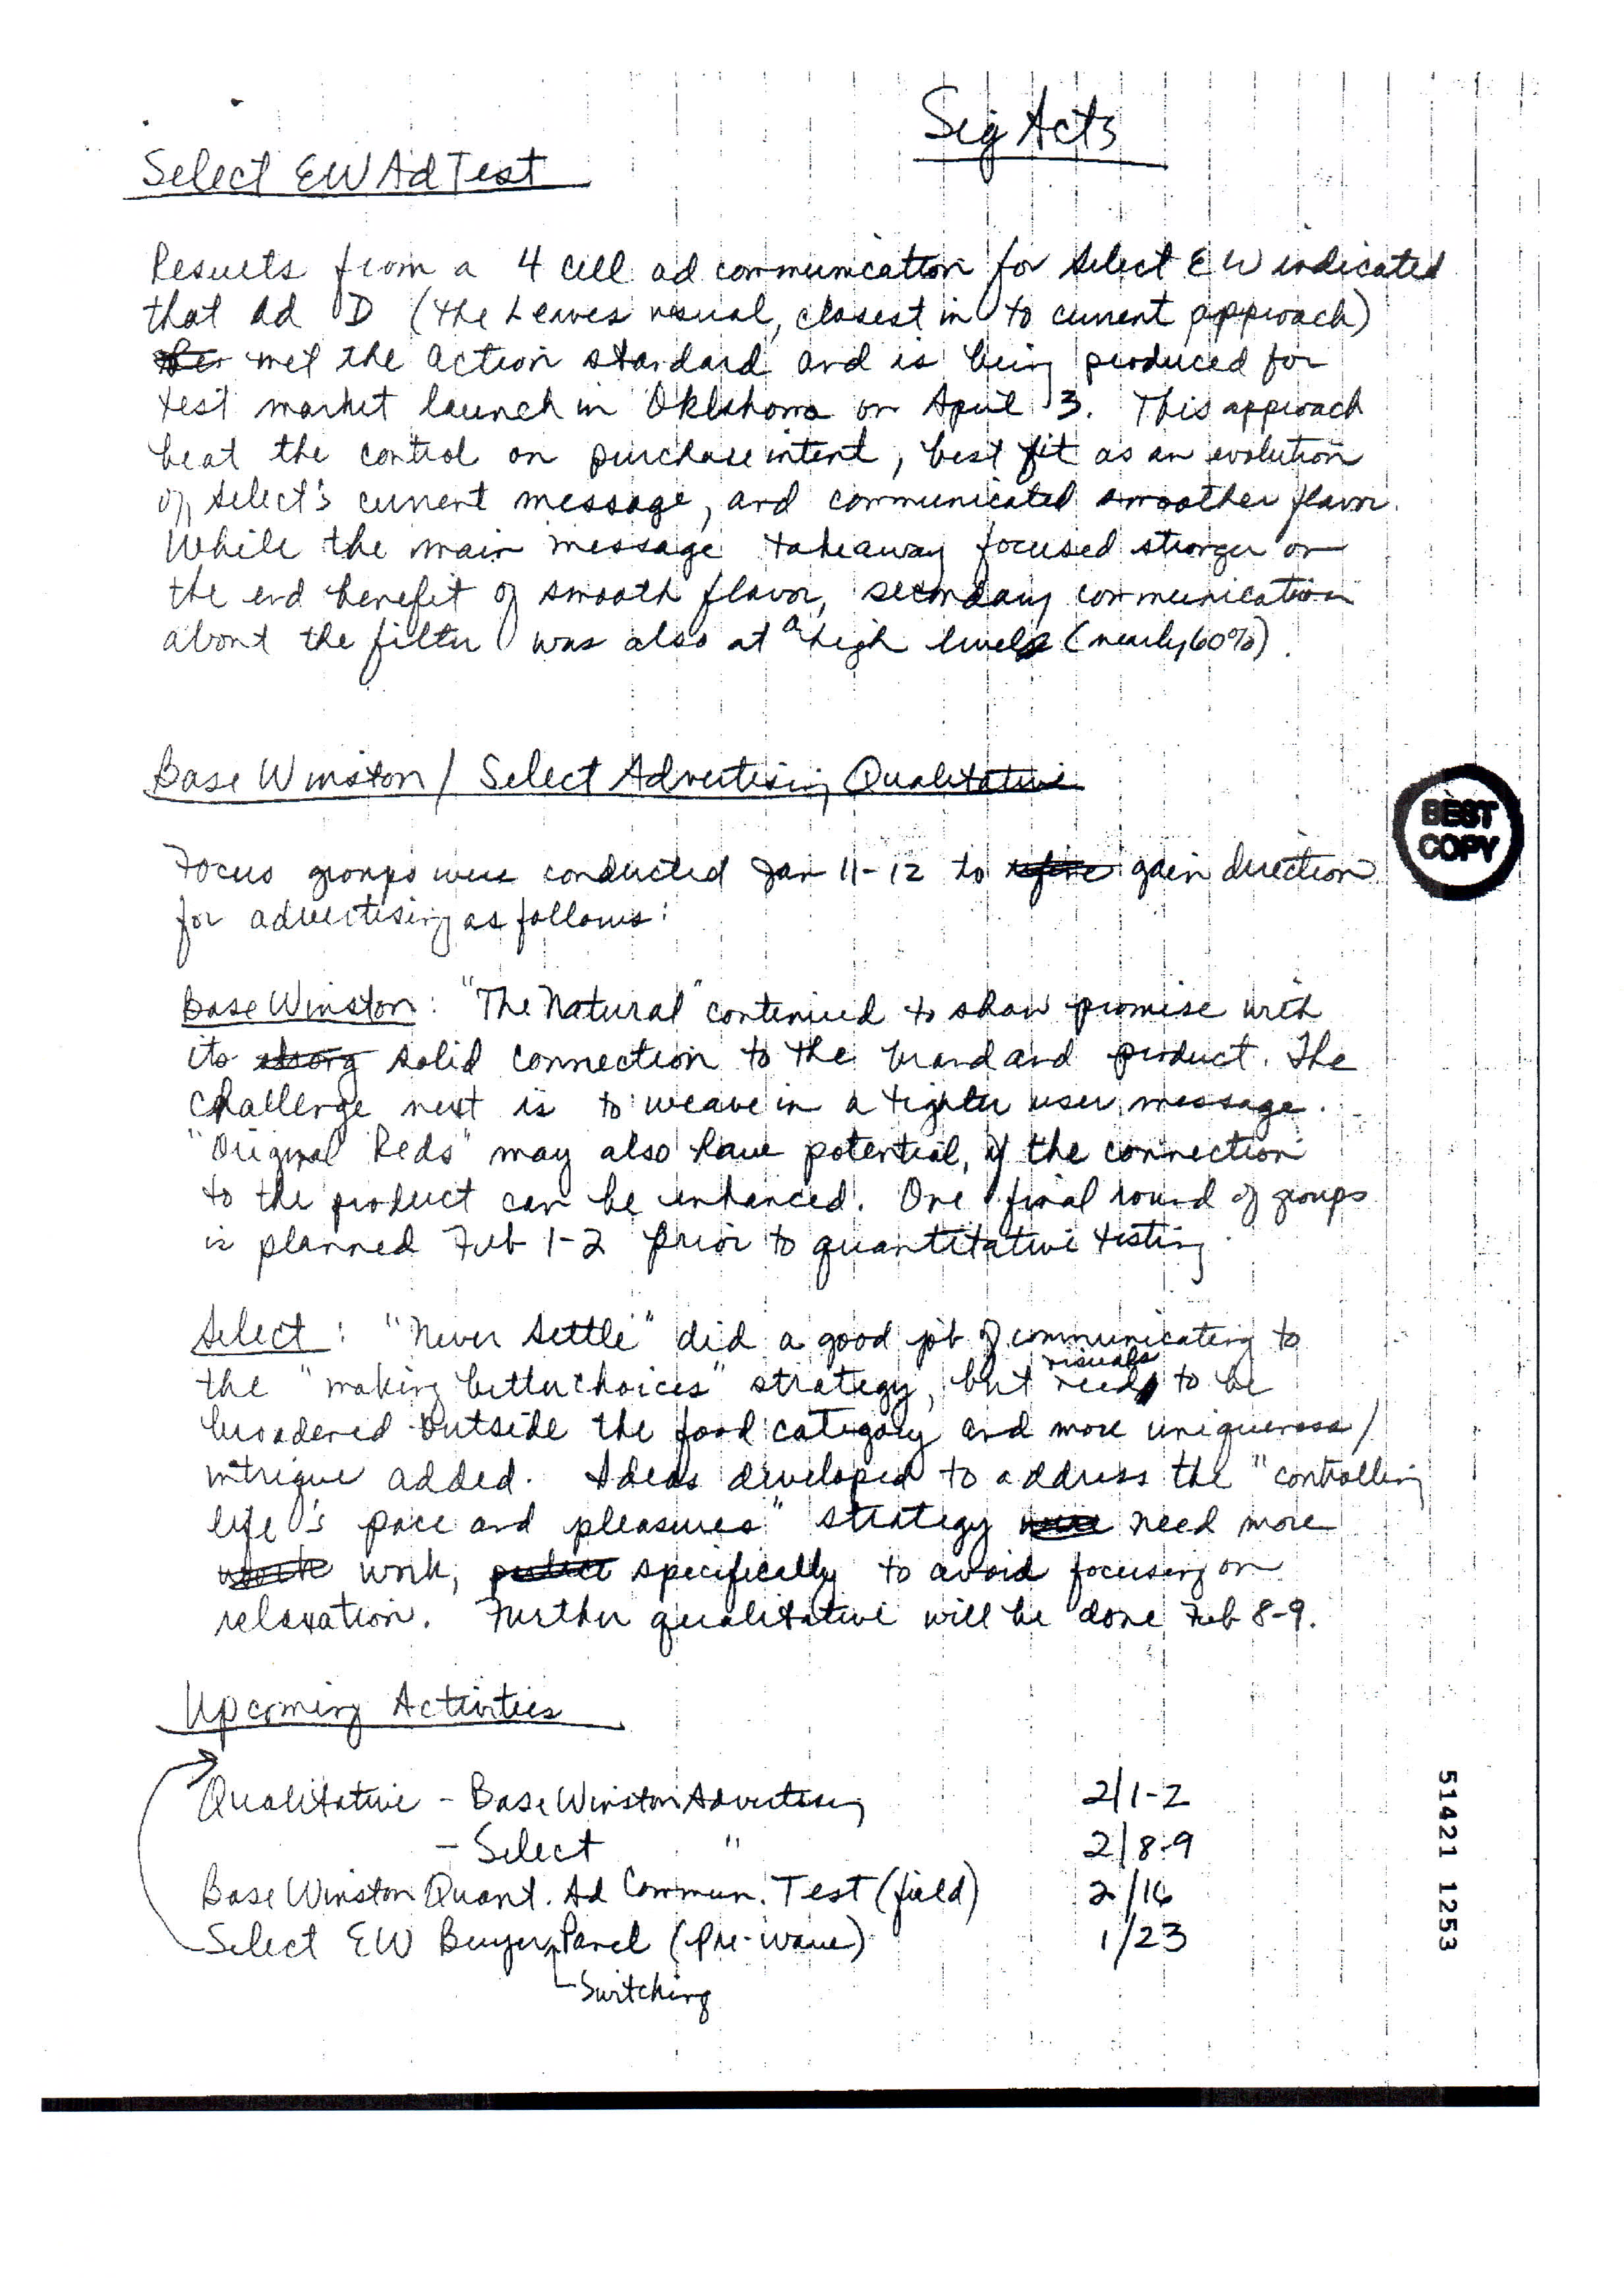 Sig Acts
Select EW Ad Test
Results from a 4 cell ad communication for Select EW indicated
that Ad D (the Leaves visual, closest in to current approach)
met the action standard and is being produced for
test market launch in Oklahoma on April 3. This approach
beat the control on purchase intent, best fit as an evolution
of Select's current message, and communicated smoother flavor.
While the main message takeaway focused stronger on
the end benefit of smooth flavor, secondary communication
about the filter was also at a high level (nearly 60%).
Base Winston / Select Advertising Qualitative
BEST
COPY
Focus groups were conducted Jan 11-12 to refine gain direction
for advertising as follows:
Base Winston: "The Natural" continued to show promise with
its strong solid connection to the brand and product. The
challenge next is to weave in a tighter user message.
"Original Reds" may also have potential, if the connection
to the product can be enhanced. One final round of groups
is planned Feb 1-2 prior to quantitative testing.
Select: "Never Settle" did a good job of communicating to
the "making better choices" strategy, but visuals need to be
broadened outside the food category and more uniqueness/
intrigue added. Ideas developed to address the "controlling
life's pace and pleasures" strategy were need more
work, specifically to avoid focusing on
relaxation. Further qualitative will be done Feb 8-9.
Upcoming Activities
Qualitative - Base Winston Advertising 2/1-2
- Select " 2/8-9
Base Winston Quant. Ad Commun. Test (field) 2/16
Select EW Buyer Panel (Pre-wave) 1/23
Switching
51421 1253